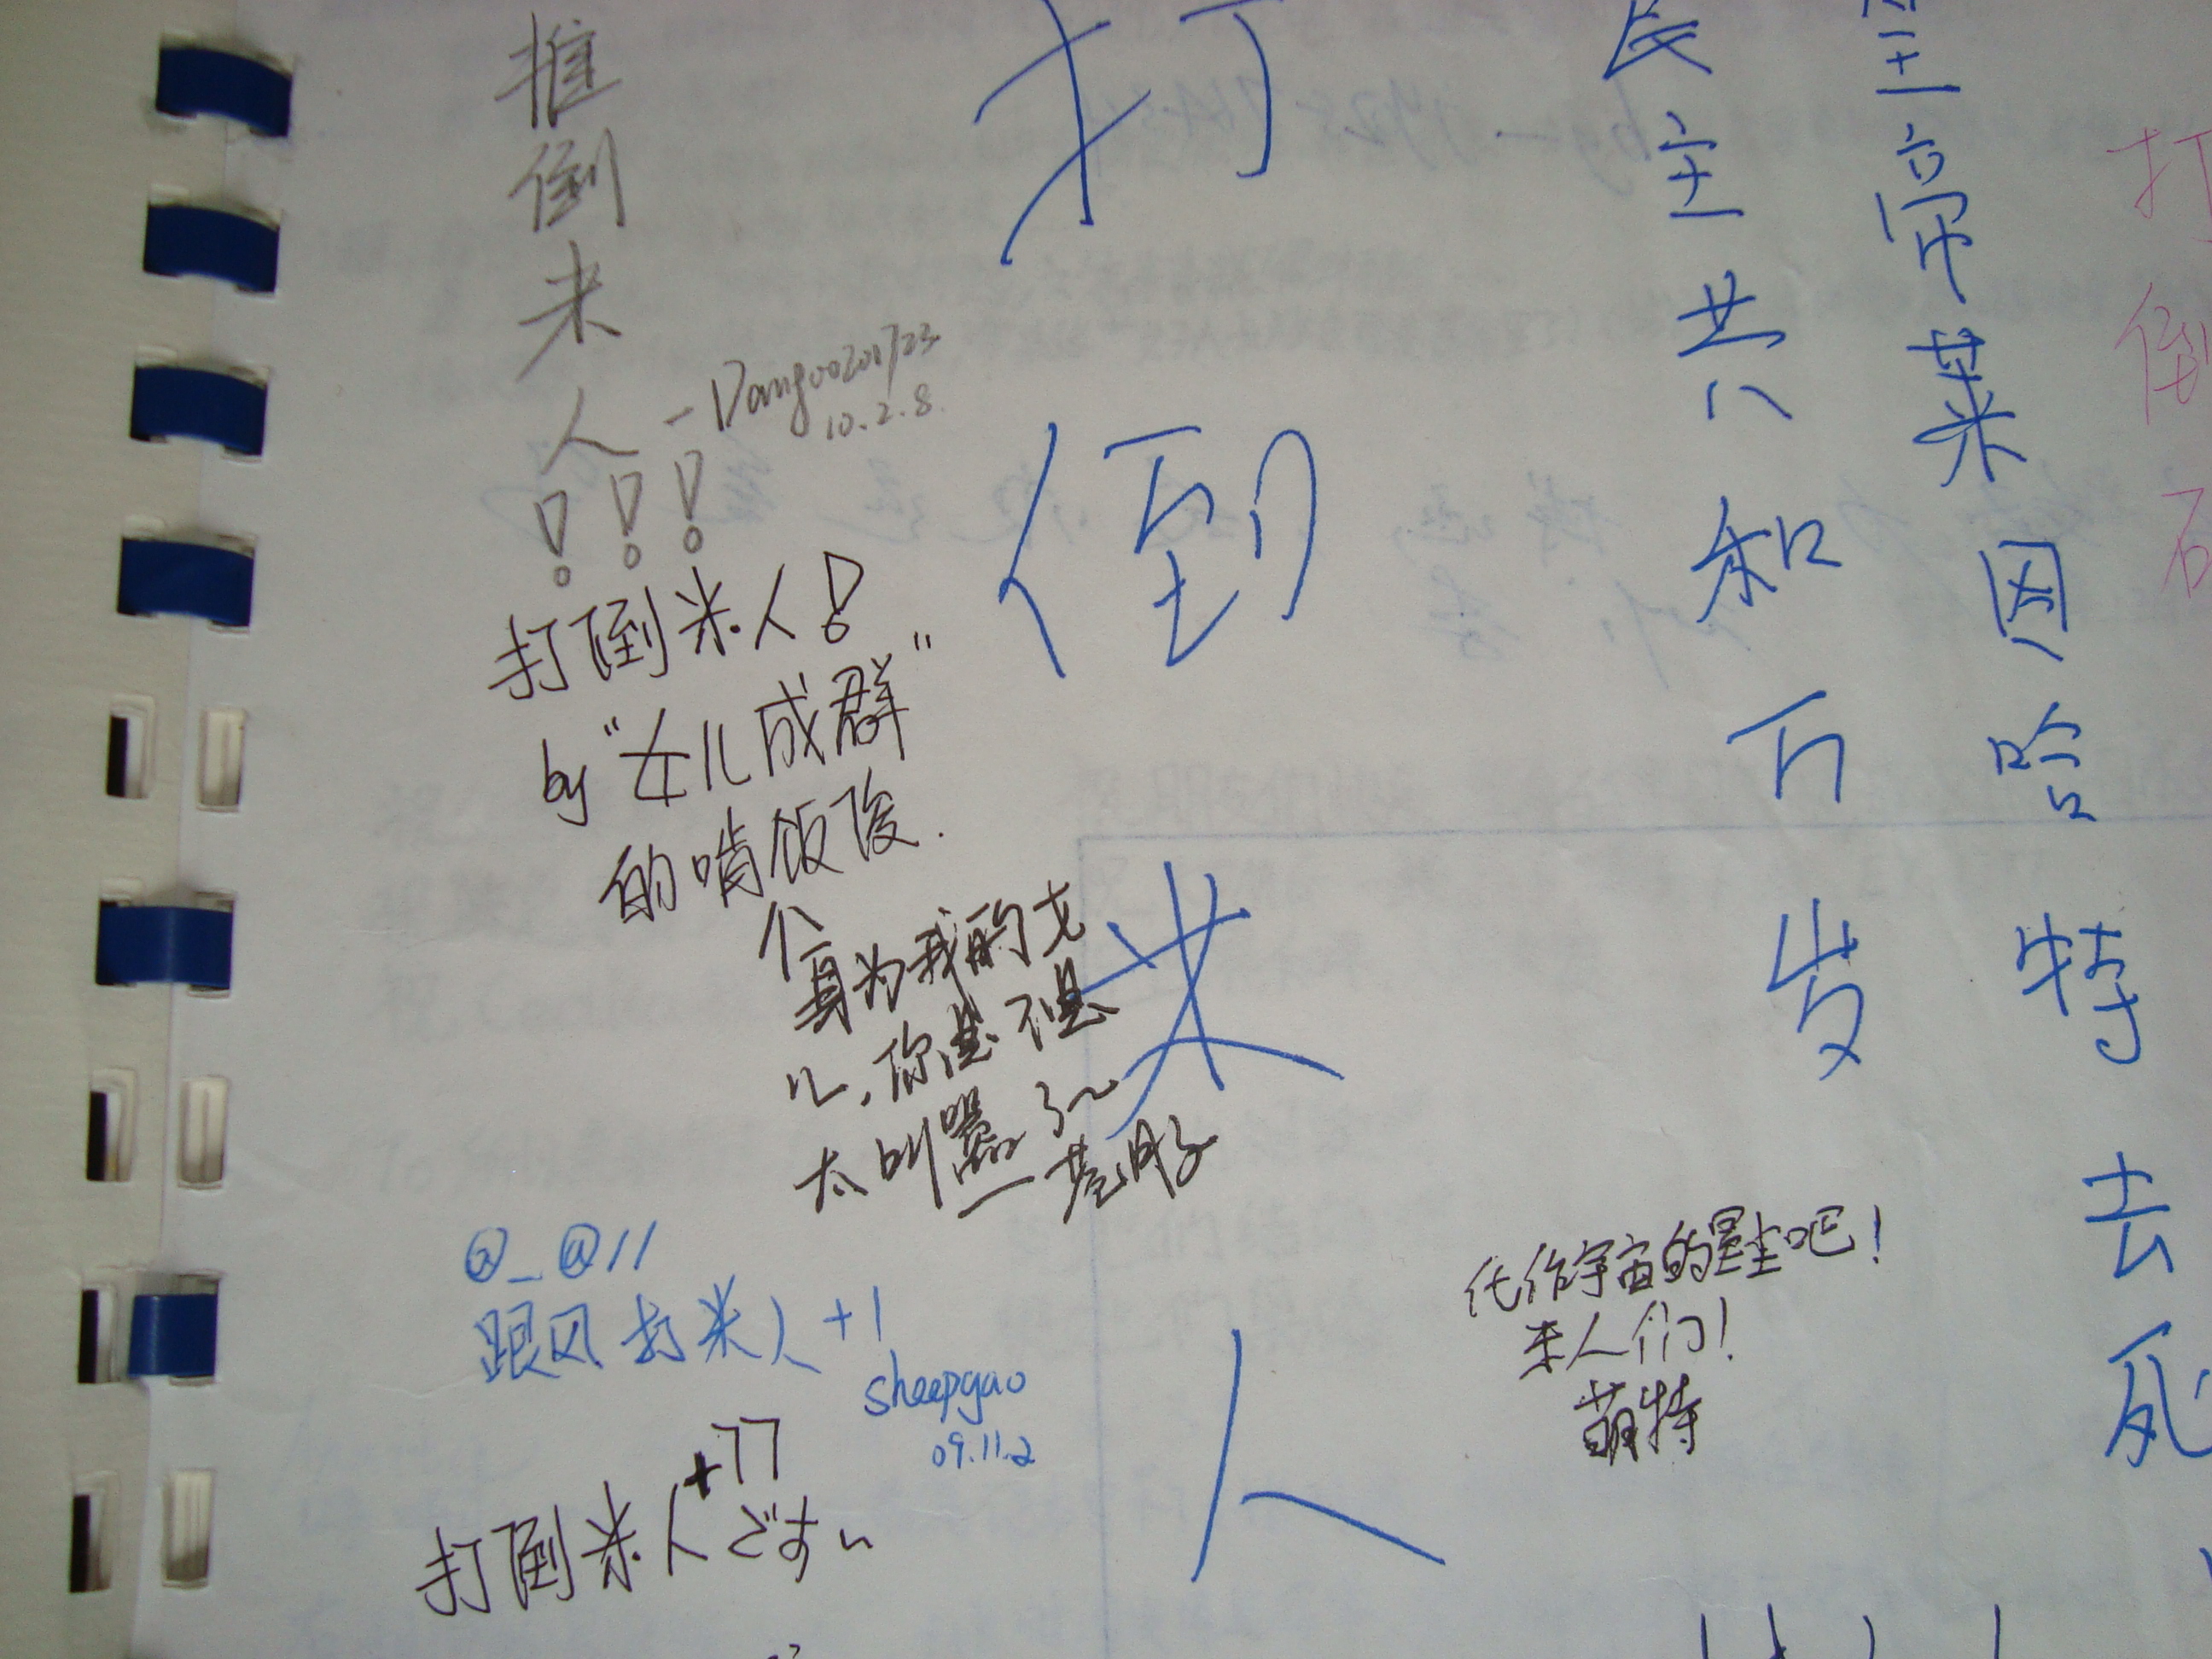 推倒米人!!!
-Dangoo201723
10.2.8.
打倒米人!
by“女儿成群”
的啃饭俊.
个
身为我的女
儿,你总不思
太叫嚣了~
@_@//
跟风打米人+1
sheepgao
09.11.2
打倒米人+77
ですぃ
打倒米人
民主共和万岁
皇帝莱因哈特去死
化作宇宙的星尘吧!
米人们!
萌特
打倒石